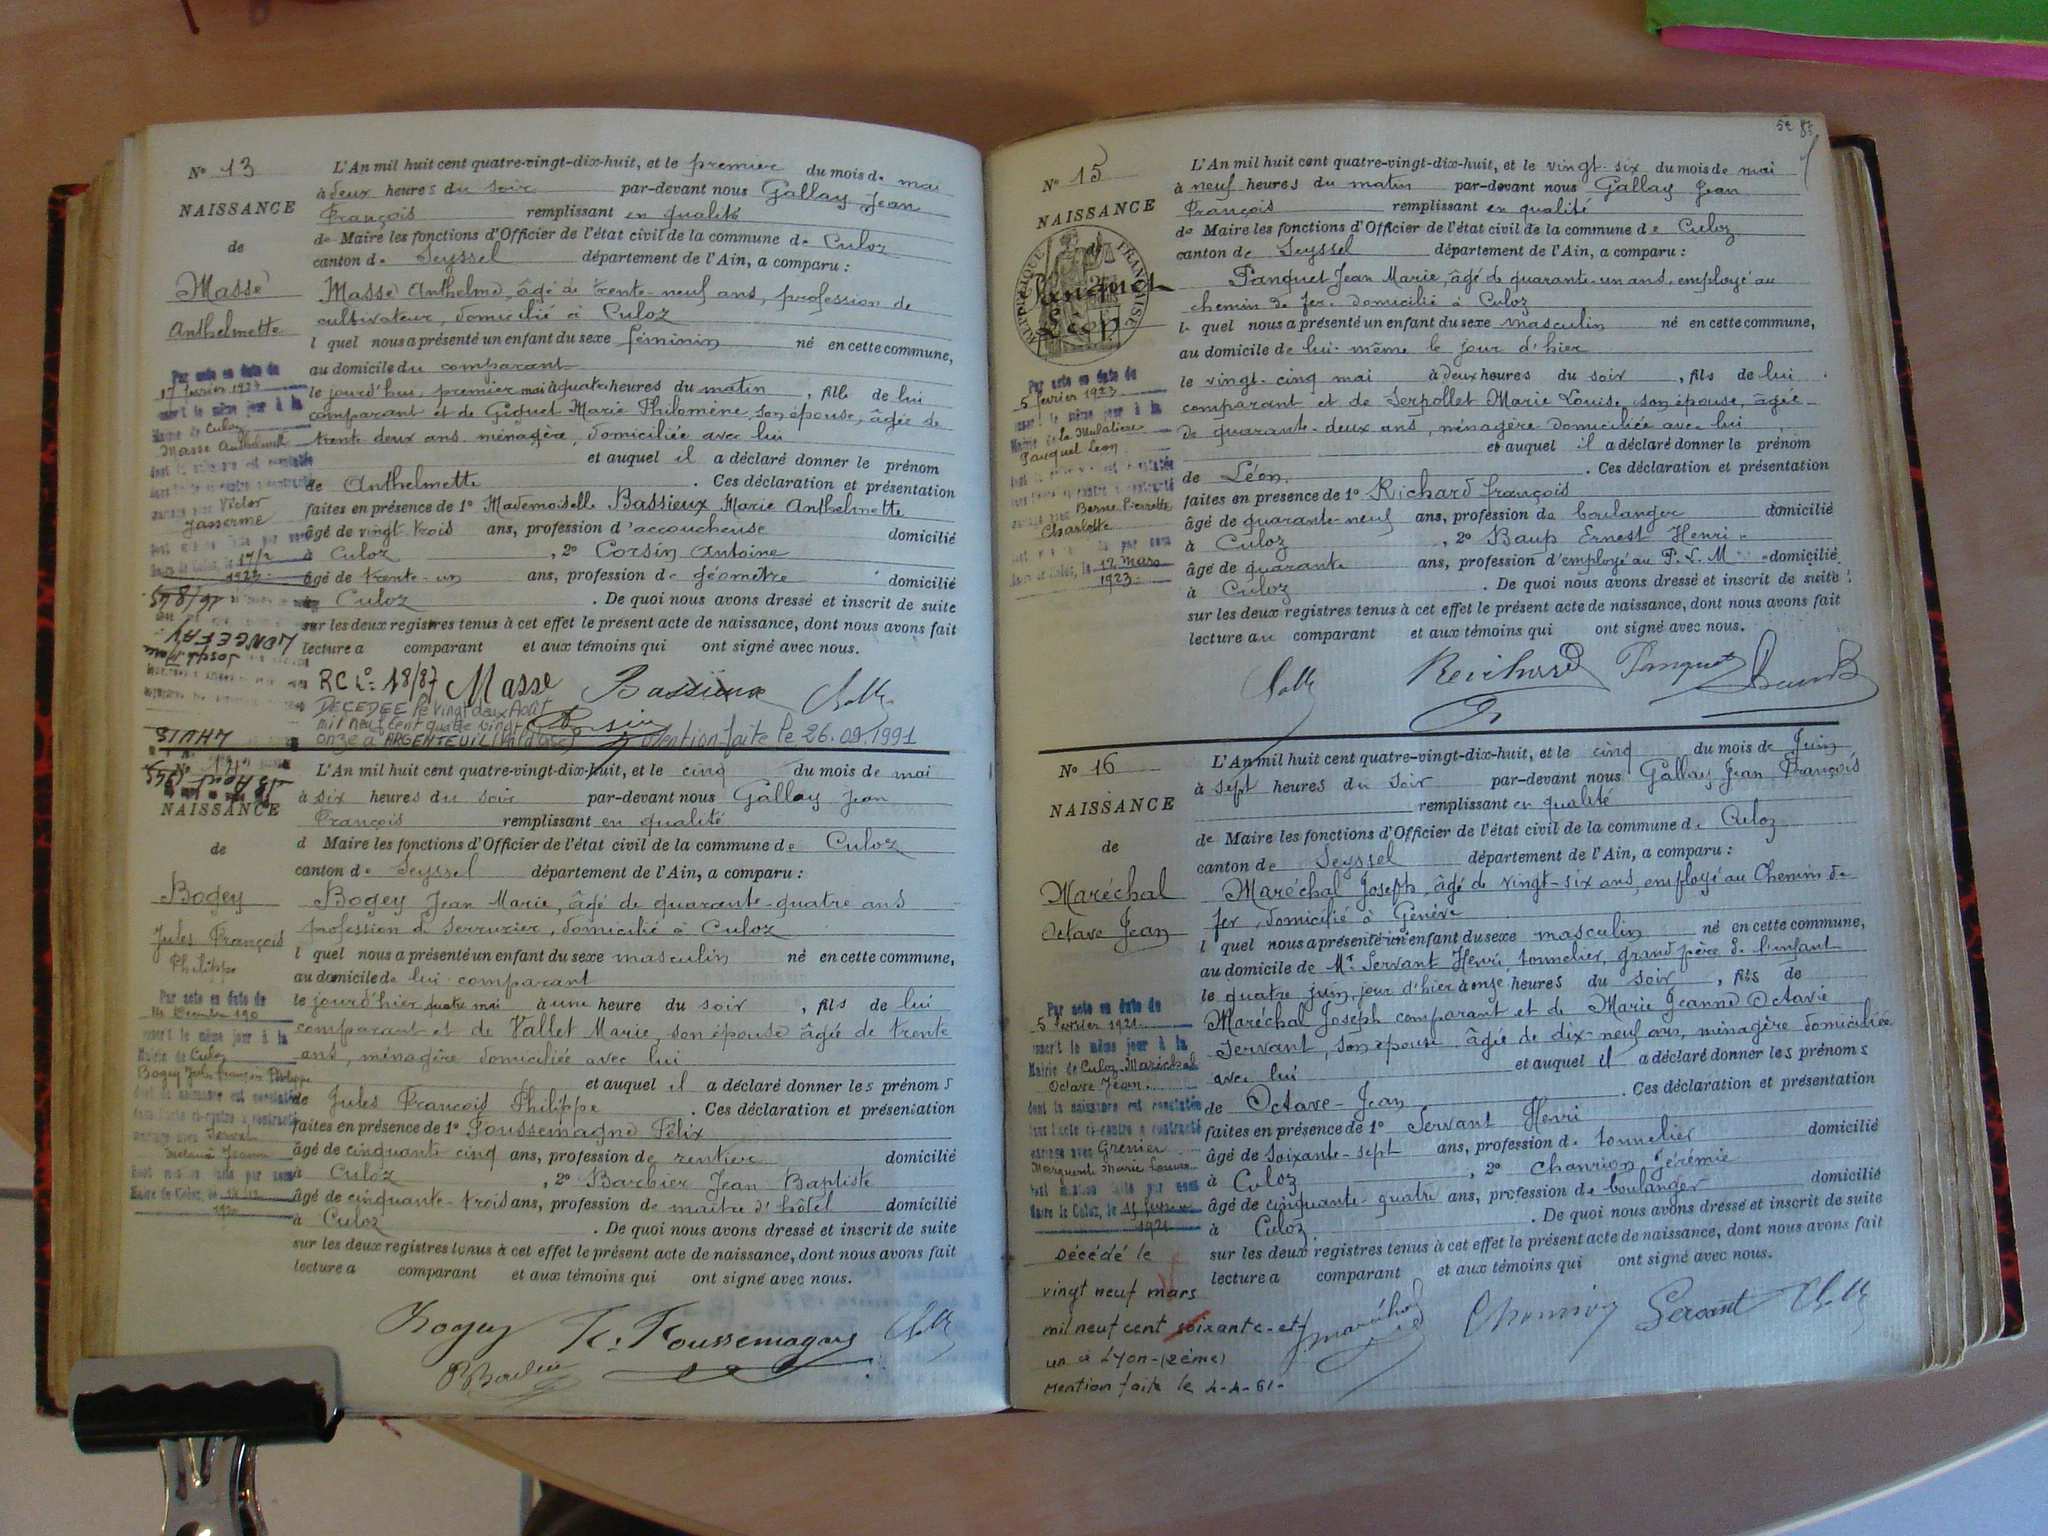 Nº 13
NAISSANCE
de
Masse
Anthelmette
L'An mil huit cent quatre-vingt-dix-huit, et le premier du mois de mai
à deux heures du soir par-devant nous Gallay Jean
François remplissant en qualité
de Maire les fonctions d'Officier de l'état civil de la commune de Culoz
canton de Seyssel département de l'Ain, a comparu :
Masse Anthelme, âgé de trente-neuf ans, profession de
cultivateur, domicilié à Culoz
l quel nous a présenté un enfant du sexe féminin né en cette commune,
au domicile du comparant
le jourd'hui, premier mai à quatre heures du matin, fille de lui
comparant et de Giguet Marie Philomène, son épouse, âgée de
trente deux ans, ménagère, domiciliée avec lui
et auquel il a déclaré donner le prénom
de Anthelmette. Ces déclaration et présentation
faites en présence de 1º Mademoiselle Bassieux Marie Anthelmette
âgé de vingt trois ans, profession d'accoucheuse domicilié
à Culoz, 2º Corsin Antoine
âgé de trente-un ans, profession de géomètre domicilié
à Culoz. De quoi nous avons dressé et inscrit de suite
sur les deux registres tenus à cet effet le présent acte de naissance, dont nous avons fait
lecture a comparant et aux témoins qui ont signé avec nous.
Par acte en date de
17 février 1923
inscrit le même jour à la
Mairie de Culoz
Masse Anthelmette
Victor
Jasserme
17/2
1923
RC Lº: 18/87 Masse Bassieux
DECEDEE le vingt deux Août
mil neuf cent quatre vingt
onze à ARGENTEUIL mention faite le 26.09.1991
NAISSANCE
de
Bogey
Jules François
Philippe
L'An mil huit cent quatre-vingt-dix-huit, et le cinq du mois de mai
à six heures du soir par-devant nous Gallay Jean
François remplissant en qualité
d Maire les fonctions d'Officier de l'état civil de la commune de Culoz
canton de Seyssel département de l'Ain, a comparu :
Bogey Jean Marie, âgé de quarante-quatre ans
profession de Serrurier, domicilié à Culoz
l quel nous a présenté un enfant du sexe masculin né en cette commune,
au domicile de lui comparant
le jourd'hier quatre mai à une heure du soir, fils de lui
comparant et de Vallet Marie, son épouse âgée de trente
ans, ménagère domiciliée avec lui
et auquel il a déclaré donner les prénoms
de Jules François Philippe. Ces déclaration et présentation
faites en présence de 1º Foussemagne Félix
âgé de cinquante cinq ans, profession de rentier domicilié
à Culoz, 2º Barbier Jean Baptiste
âgé de cinquante-trois ans, profession de maître d'hôtel domicilié
à Culoz. De quoi nous avons dressé et inscrit de suite
sur les deux registres tenus à cet effet le présent acte de naissance, dont nous avons fait
lecture a comparant et aux témoins qui ont signé avec nous.
Par acte en date de
inscrit le même jour à la
Mairie de Culoz
Bogey Jules François Philippe
dont la naissance est constatée
dans l'acte ci-contre a contracté
mariage avec
Jeanne
dont mention faite par nous
Maire de Culoz, le
Bogey F. Foussemagne
Nº 15
NAISSANCE
de
RÉPUBLIQUE FRANÇAISE
Panquet
Léon
L'An mil huit cent quatre-vingt-dix-huit, et le vingt-six du mois de mai
à neuf heures du matin par-devant nous Gallay Jean
François remplissant en qualité
de Maire les fonctions d'Officier de l'état civil de la commune de Culoz
canton de Seyssel département de l'Ain, a comparu :
Panquet Jean Marie, âgé de quarante-un ans, employé au
chemin de fer, domicilié à Culoz
l quel nous a présenté un enfant du sexe masculin né en cette commune,
au domicile de lui-même le jour d'hier
le vingt-cinq mai à deux heures du soir, fils de lui
comparant et de Serpollet Marie Louise son épouse, âgée
de quarante-deux ans, ménagère domiciliée avec lui
et auquel il a déclaré donner le prénom
de Léon. Ces déclaration et présentation
faites en présence de 1º Richard François
âgé de quarante-neuf ans, profession de boulanger domicilié
à Culoz, 2º Baup Ernest Henri
âgé de quarante ans, profession d'employé au P. L. M domicilié
à Culoz. De quoi nous avons dressé et inscrit de suite
sur les deux registres tenus à cet effet le présent acte de naissance, dont nous avons fait
lecture au comparant et aux témoins qui ont signé avec nous.
Par acte en date de
5 février 1923
inscrit le même jour à la
Mairie de la Mulatière
Panquet Léon
Berne Pierrette
Charlotte
Maire de Culoz, le 12 mars
1923
Richard Panquet Baup
Nº 16
NAISSANCE
de
Maréchal
Octave Jean
L'An mil huit cent quatre-vingt-dix-huit, et le cinq du mois de Juin
à sept heures du soir par-devant nous Gallay Jean François
remplissant en qualité
de Maire les fonctions d'Officier de l'état civil de la commune de Culoz
canton de Seyssel département de l'Ain, a comparu :
Maréchal Joseph, âgé de vingt-six ans, employé au Chemin de
fer, domicilié à Genève
l quel nous a présenté un enfant du sexe masculin né en cette commune,
au domicile de Mr Servant Henri, tonnelier, grand père de l'enfant
le quatre juin, jour d'hier à onze heures du soir, fils de
Maréchal Joseph comparant et de Marie Jeanne Octavie
Servant, son épouse âgée de dix-neuf ans, ménagère domiciliée
avec lui et auquel il a déclaré donner les prénoms
de Octave-Jean. Ces déclaration et présentation
faites en présence de 1º Servant Henri
âgé de soixante-sept ans, profession de tonnelier domicilié
à Culoz, 2º Chanrion Jérémie
âgé de cinquante-quatre ans, profession de boulanger domicilié
à Culoz. De quoi nous avons dressé et inscrit de suite
sur les deux registres tenus à cet effet le présent acte de naissance, dont nous avons fait
lecture a comparant et aux témoins qui ont signé avec nous.
Par acte en date de
5 février 1921
inscrit le même jour à la
Mairie de Culoz Maréchal
Octave Jean
dont la naissance est constatée
dans l'acte ci-contre a contracté
mariage avec Grenier
Marguerite Marie Louise
dont mention faite par nous
Maire de Culoz, le
1921
Décédé le
vingt neuf mars
mil neuf cent soixante-et-
un à Lyon-(2ème)
Mention faite le 4-4-61-
Maréchal Chanrion Servant